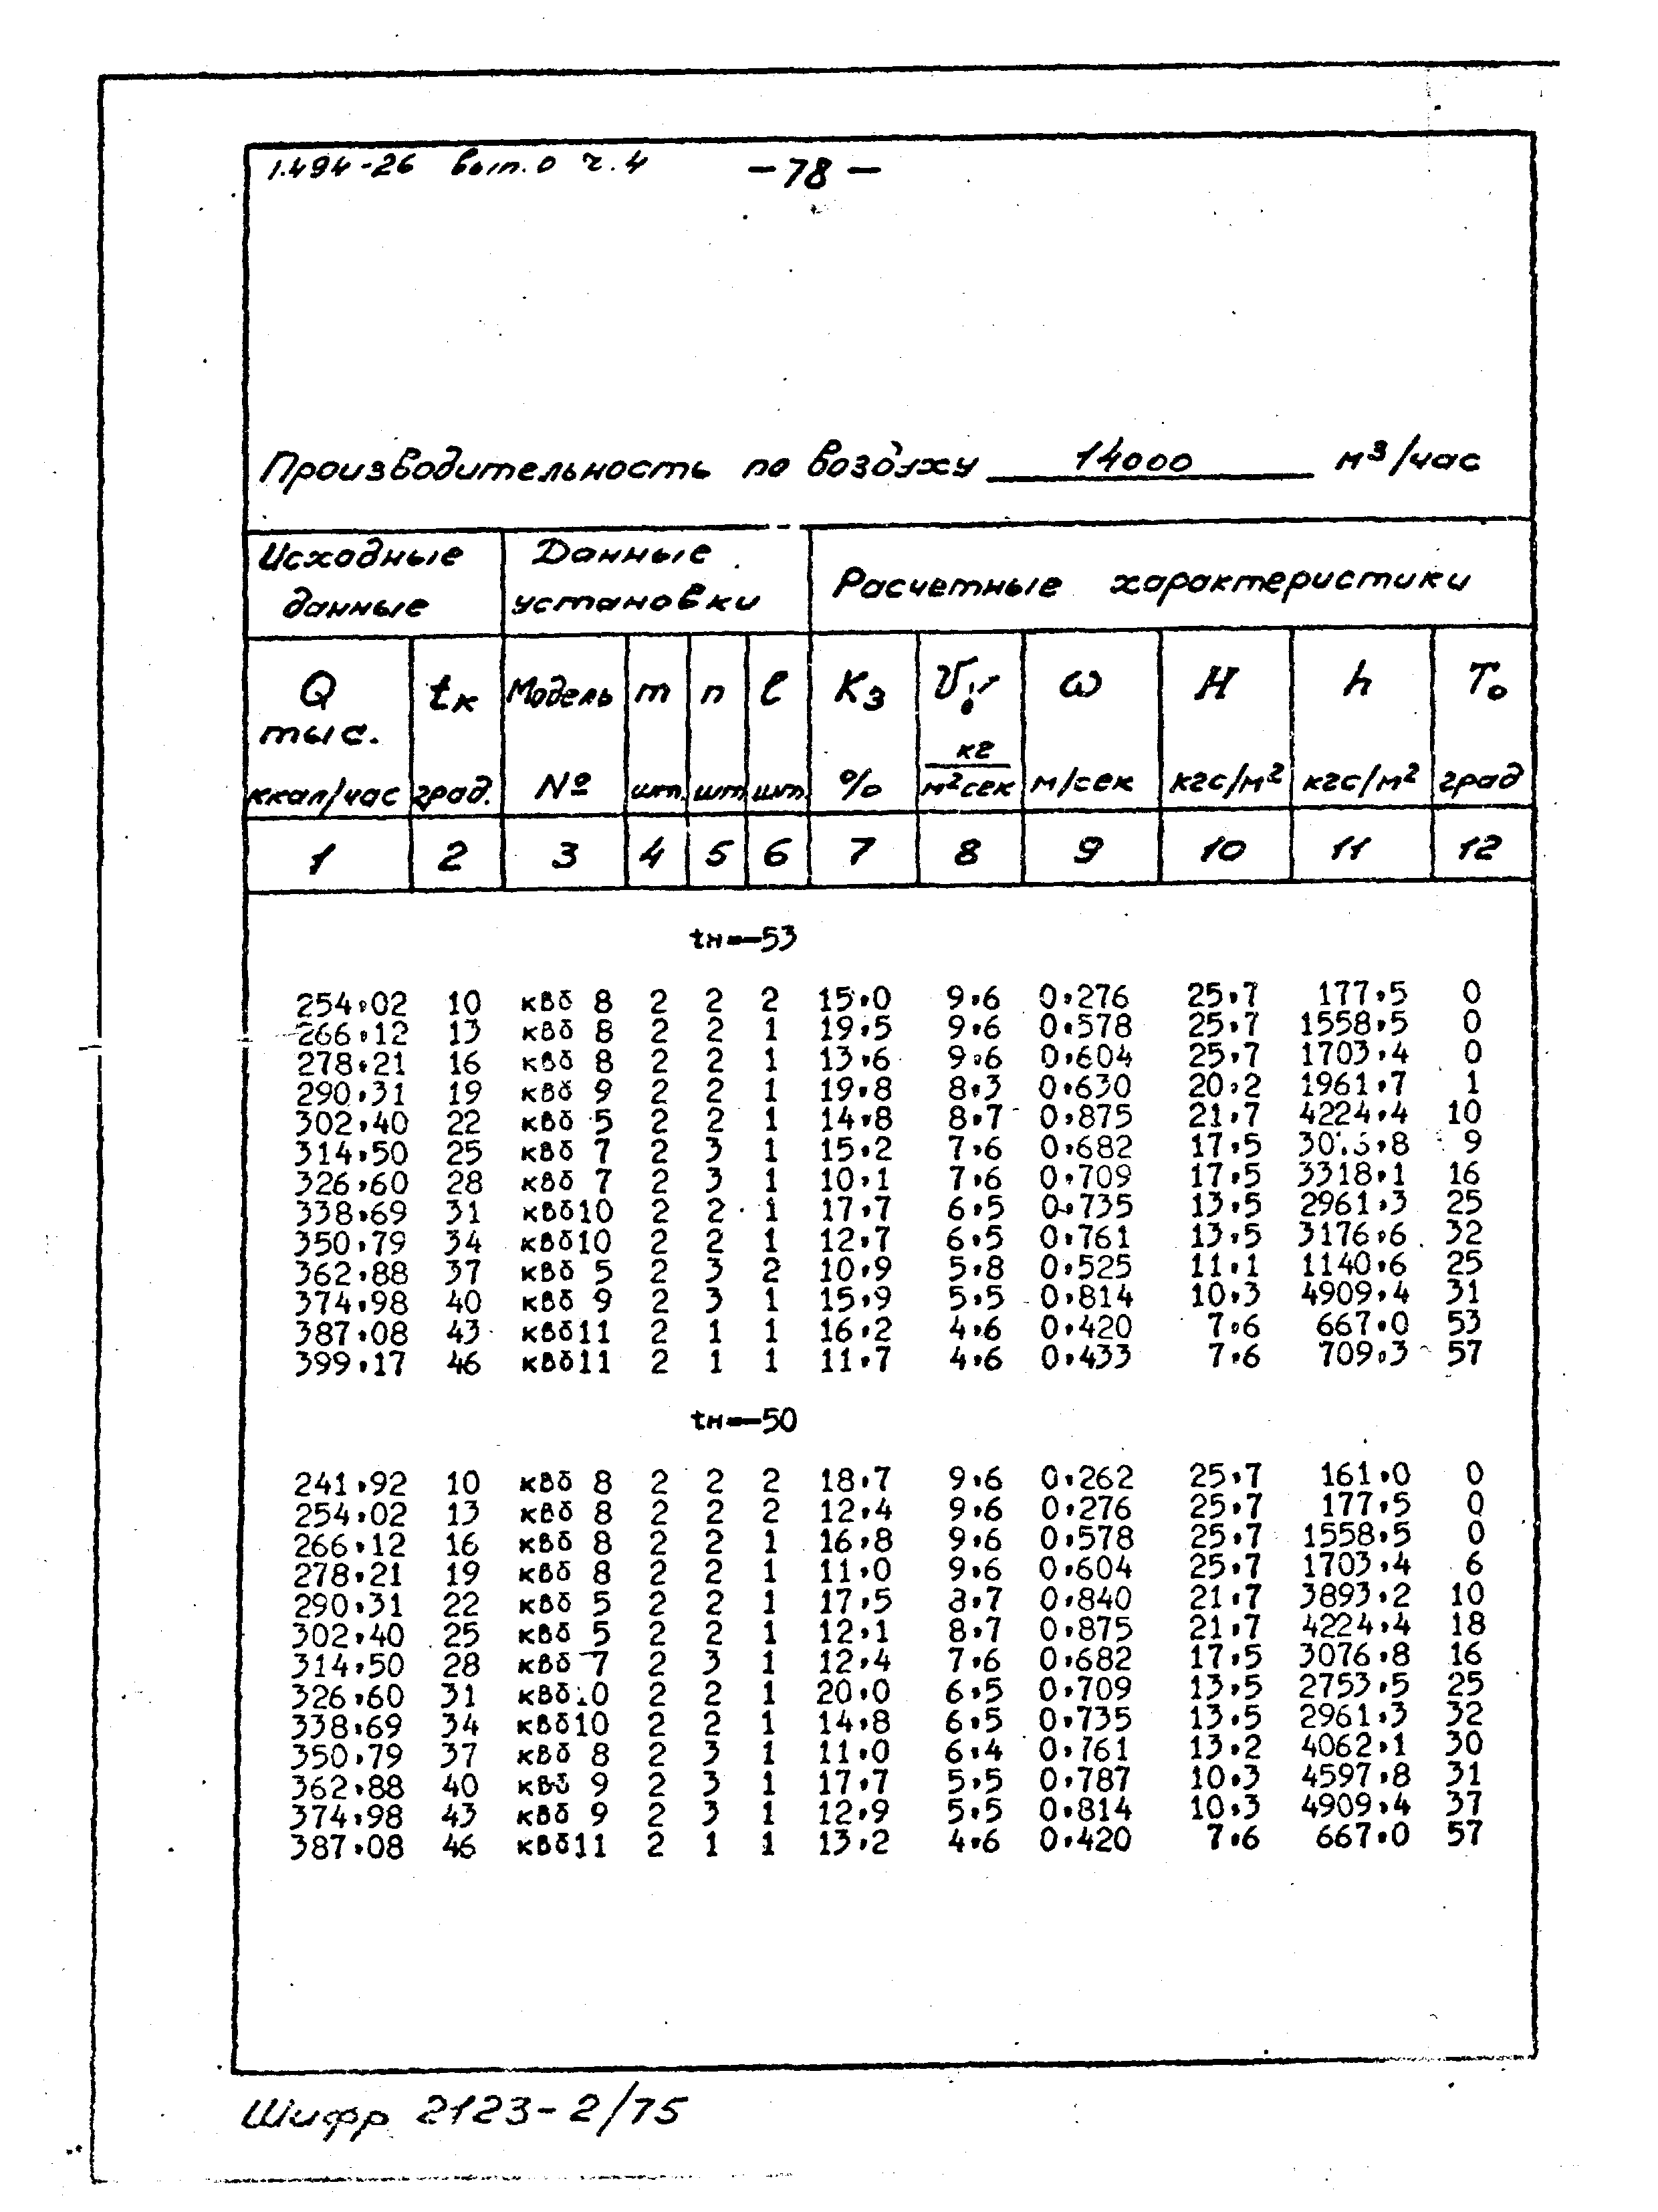 1.494-26 вып.0 ч.4 -78-
Производительность по воздуху 14000 м³/час
Исходные данные Данные установки Расчетные характеристики
Q tк Модель m n l Kз Vγ ω H h To
тыс. ккал/час град. № шт. шт. шт. % кг/м²сек м/сек кгс/м² кгс/м² град
1 2 3 4 5 6 7 8 9 10 11 12
tн=-53
254.02 10 квб 8 2 2 2 15.0 9.6 0.276 25.7 177.5 0
266.12 13 квб 8 2 2 1 19.5 9.6 0.578 25.7 1558.5 0
278.21 16 квб 8 2 2 1 13.6 9.6 0.604 25.7 1703.4 0
290.31 19 квб 9 2 2 1 19.8 8.3 0.630 20.2 1961.7 1
302.40 22 квб 5 2 2 1 14.8 8.7 0.875 21.7 4224.4 10
314.50 25 квб 7 2 3 1 15.2 7.6 0.682 17.5 9
326.60 28 квб 7 2 3 1 10.1 7.6 0.709 17.5 3318.1 16
338.69 31 квб10 2 2 1 17.7 6.5 0.735 13.5 2961.3 25
350.79 34 квб10 2 2 1 12.7 6.5 0.761 13.5 3176.6 32
362.88 37 квб 5 2 3 2 10.9 5.8 0.525 11.1 1140.6 25
374.98 40 квб 9 2 3 1 15.9 5.5 0.814 10.3 4909.4 31
387.08 43 квб11 2 1 1 16.2 4.6 0.420 7.6 667.0 53
399.17 46 квб11 2 1 1 11.7 4.6 0.433 7.6 709.3 57
tн=-50
241.92 10 квб 8 2 2 2 18.7 9.6 0.262 25.7 161.0 0
254.02 13 квб 8 2 2 2 12.4 9.6 0.276 25.7 177.5 0
266.12 16 квб 8 2 2 1 16.8 9.6 0.578 25.7 1558.5 0
278.21 19 квб 8 2 2 1 11.0 9.6 0.604 25.7 1703.4 6
290.31 22 квб 5 2 2 1 17.5 8.7 0.840 21.7 3893.2 10
302.40 25 квб 5 2 2 1 12.1 8.7 0.875 21.7 4224.4 18
314.50 28 квб 7 2 3 1 12.4 7.6 0.682 17.5 3076.8 16
326.60 31 2 2 1 20.0 6.5 0.709 13.5 2753.5 25
338.69 34 квб10 2 2 1 14.8 6.5 0.735 13.5 2961.3 32
350.79 37 квб 8 2 3 1 11.0 6.4 0.761 13.2 4062.1 30
362.88 40 квб 9 2 3 1 17.7 5.5 0.787 10.3 4597.8 31
374.98 43 квб 9 2 3 1 12.9 5.5 0.814 10.3 4909.4 37
387.08 46 квб11 2 1 1 13.2 4.6 0.420 7.6 667.0 57
Шифр 2123-2/75